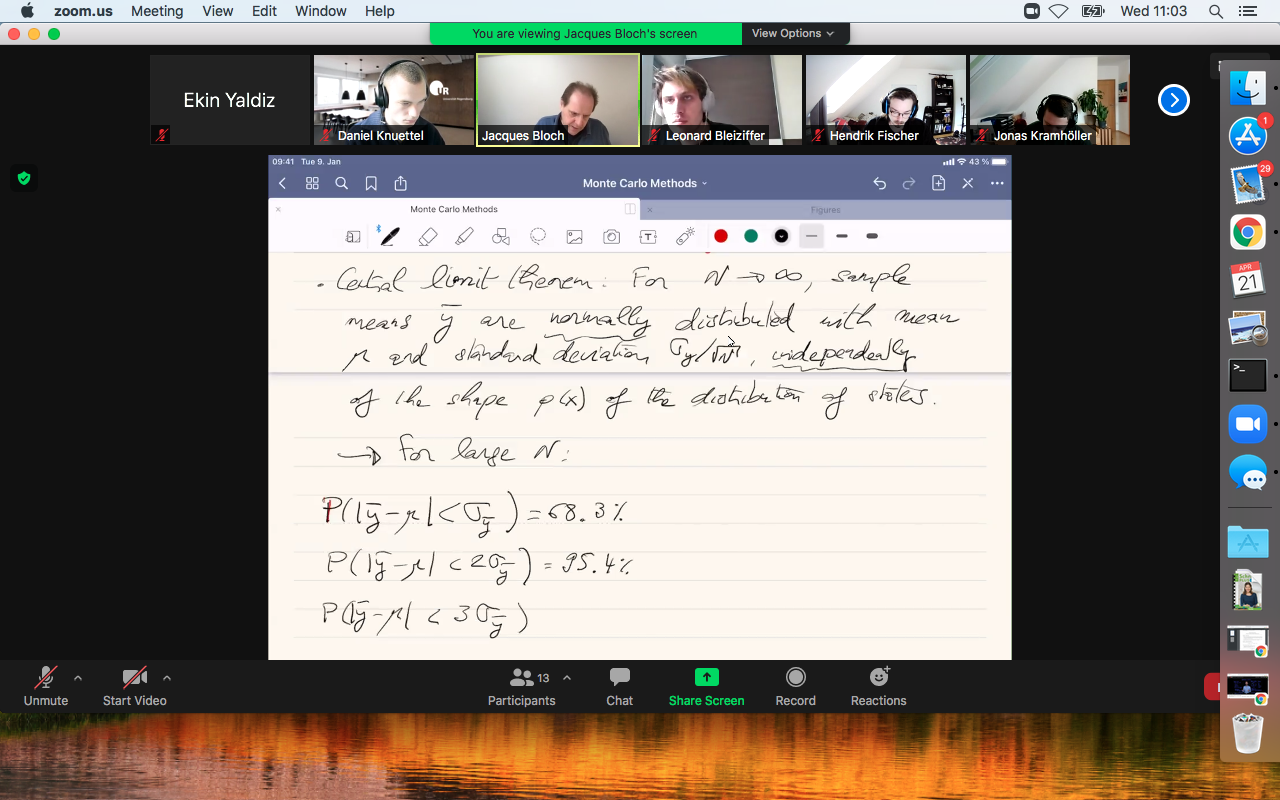 zoom.us Meeting View Edit Window Help Wed 11:03
You are viewing Jacques Bloch's screen View Options
Ekin Yaldiz
UR
Daniel Knuettel
Jacques Bloch
Leonard Bleiziffer
Hendrik Fischer
Jonas Kramhöller
09:41 Tue 9. Jan 43 %
Monte Carlo Methods
Monte Carlo Methods Figures
• Central limit theorem: For N → ∞, sample
means ȳ are normally distributed with mean
μ and standard deviation σy/√N, independently
of the shape p(x) of the distribution of states.
→ For large N:
P(|ȳ-μ| < σȳ) = 68.3%
P(|ȳ-μ| < 2σȳ) = 95.4%
P(|ȳ-μ| < 3σȳ)
1
29
APR
21
Unmute Start Video Participants 13 Chat Share Screen Record Reactions